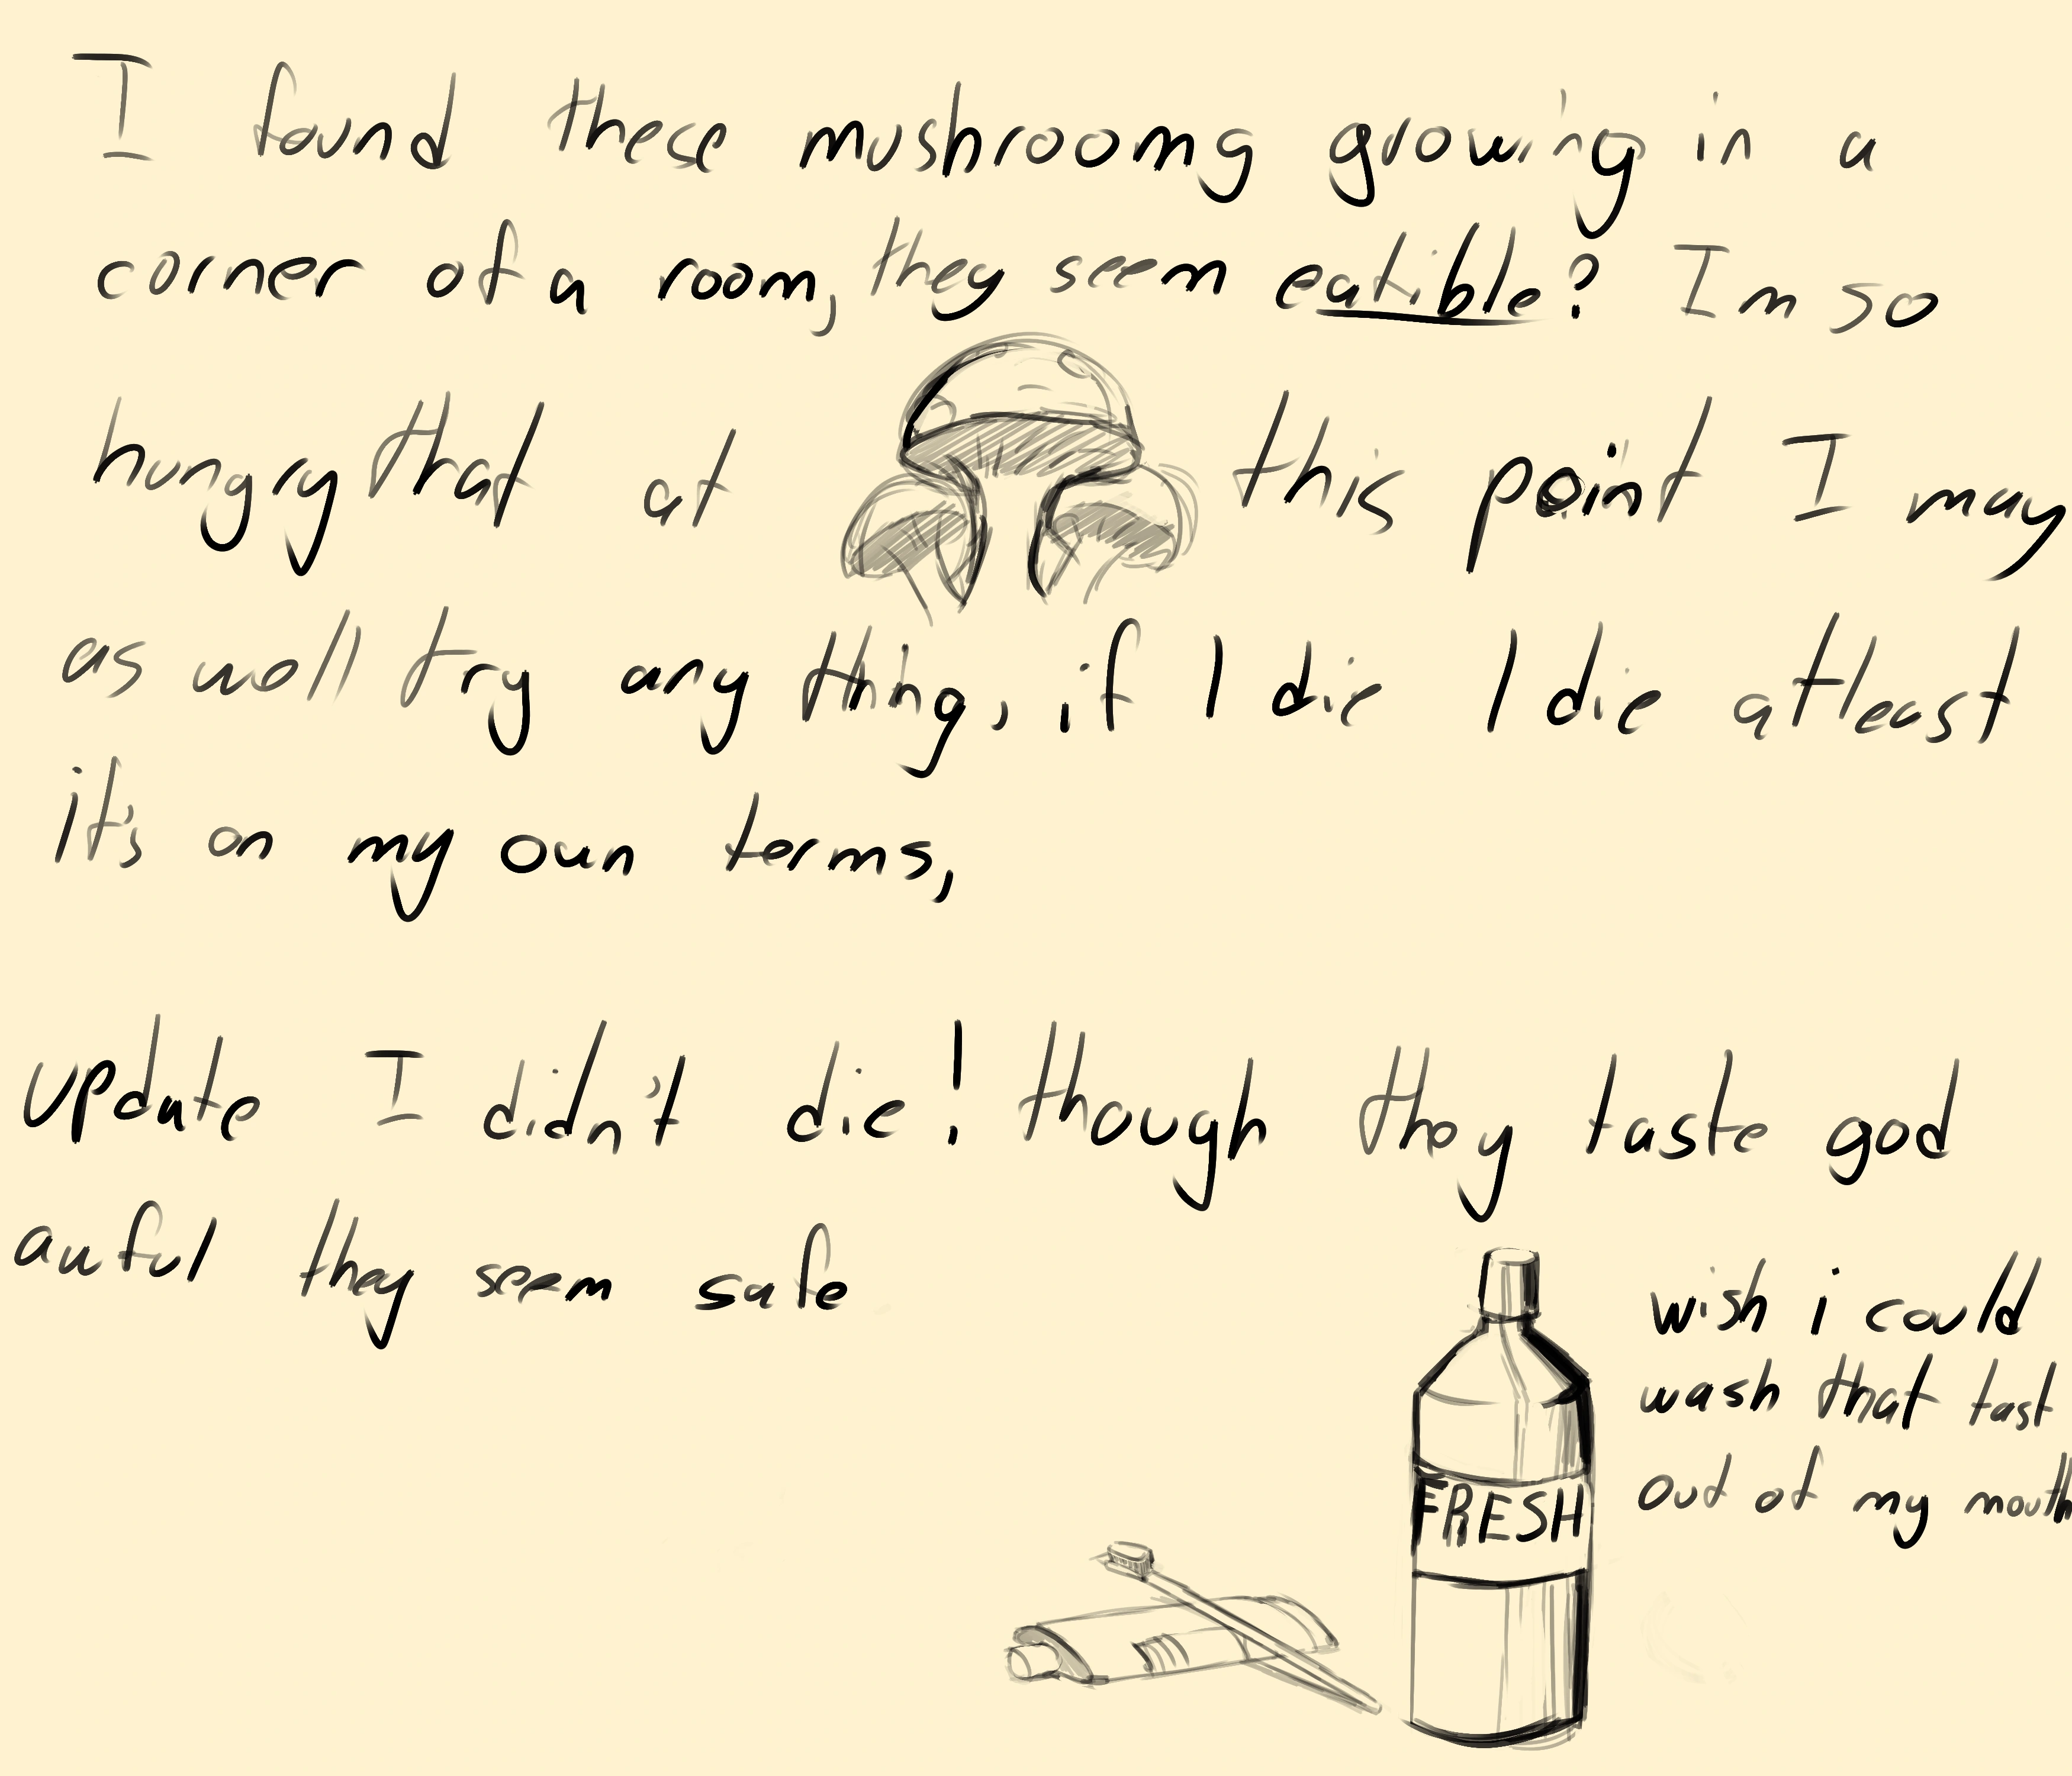 I found these mushrooms growing in a
corner of a room, they seem eatible? Im so
hungry that at this point I may
as well try any thing, if I die I die atleast
it's on my own terms,
update I didn't die! though they taste god
awful they seem safe
wish i could
wash that tast
out of my mouth
FRESH